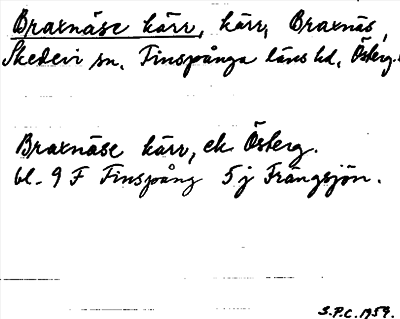 Braxnäse kärr, kärr, Braxnäs,
Skedevi sn, Finspånga läns hd, Österg.
Braxnäse kärr, ek Österg.
bl. 9 F Finspång 5 j Frängsjön.
S.P.C. 1959.